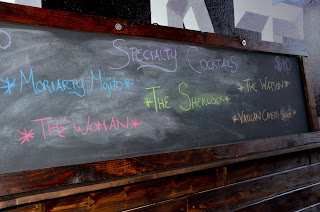 Specialty Cocktails $10
*Moriarty Mojito*
*The Sherlock*
*The Watson*
*The Woman*
*Vatican Cameos